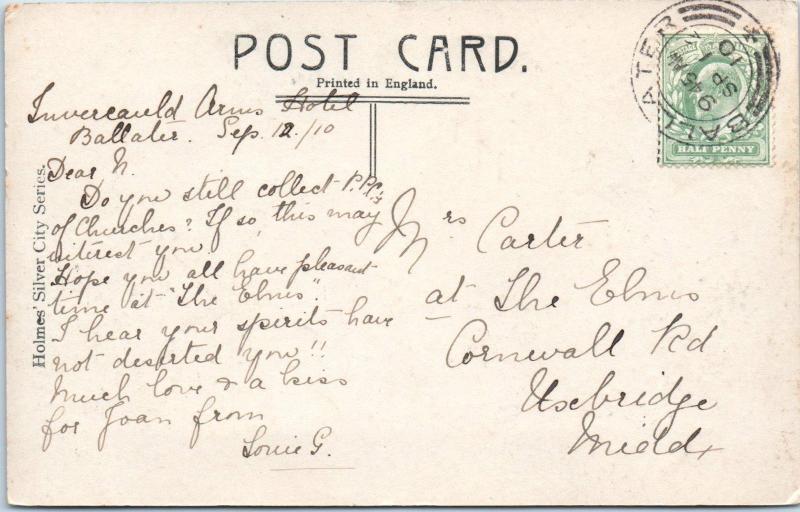 POST CARD.
Printed in England.
Invercauld Arms Hotel
Ballater. Sep. 12./10
Dear N.
Do you still collect P.P.C's
of Churches? If so, this may
interest you.
Hope you all have pleasant
time at "The Elms".
I hear your spirits have
not deserted you!!
Much love & a kiss
for Joan from
Louie G.
Holmes' Silver City Series.
Mrs Carter
at The Elms
Cornwall Rd
Uxbridge
Middx
BALLATER
SP
10
HALF PENNY